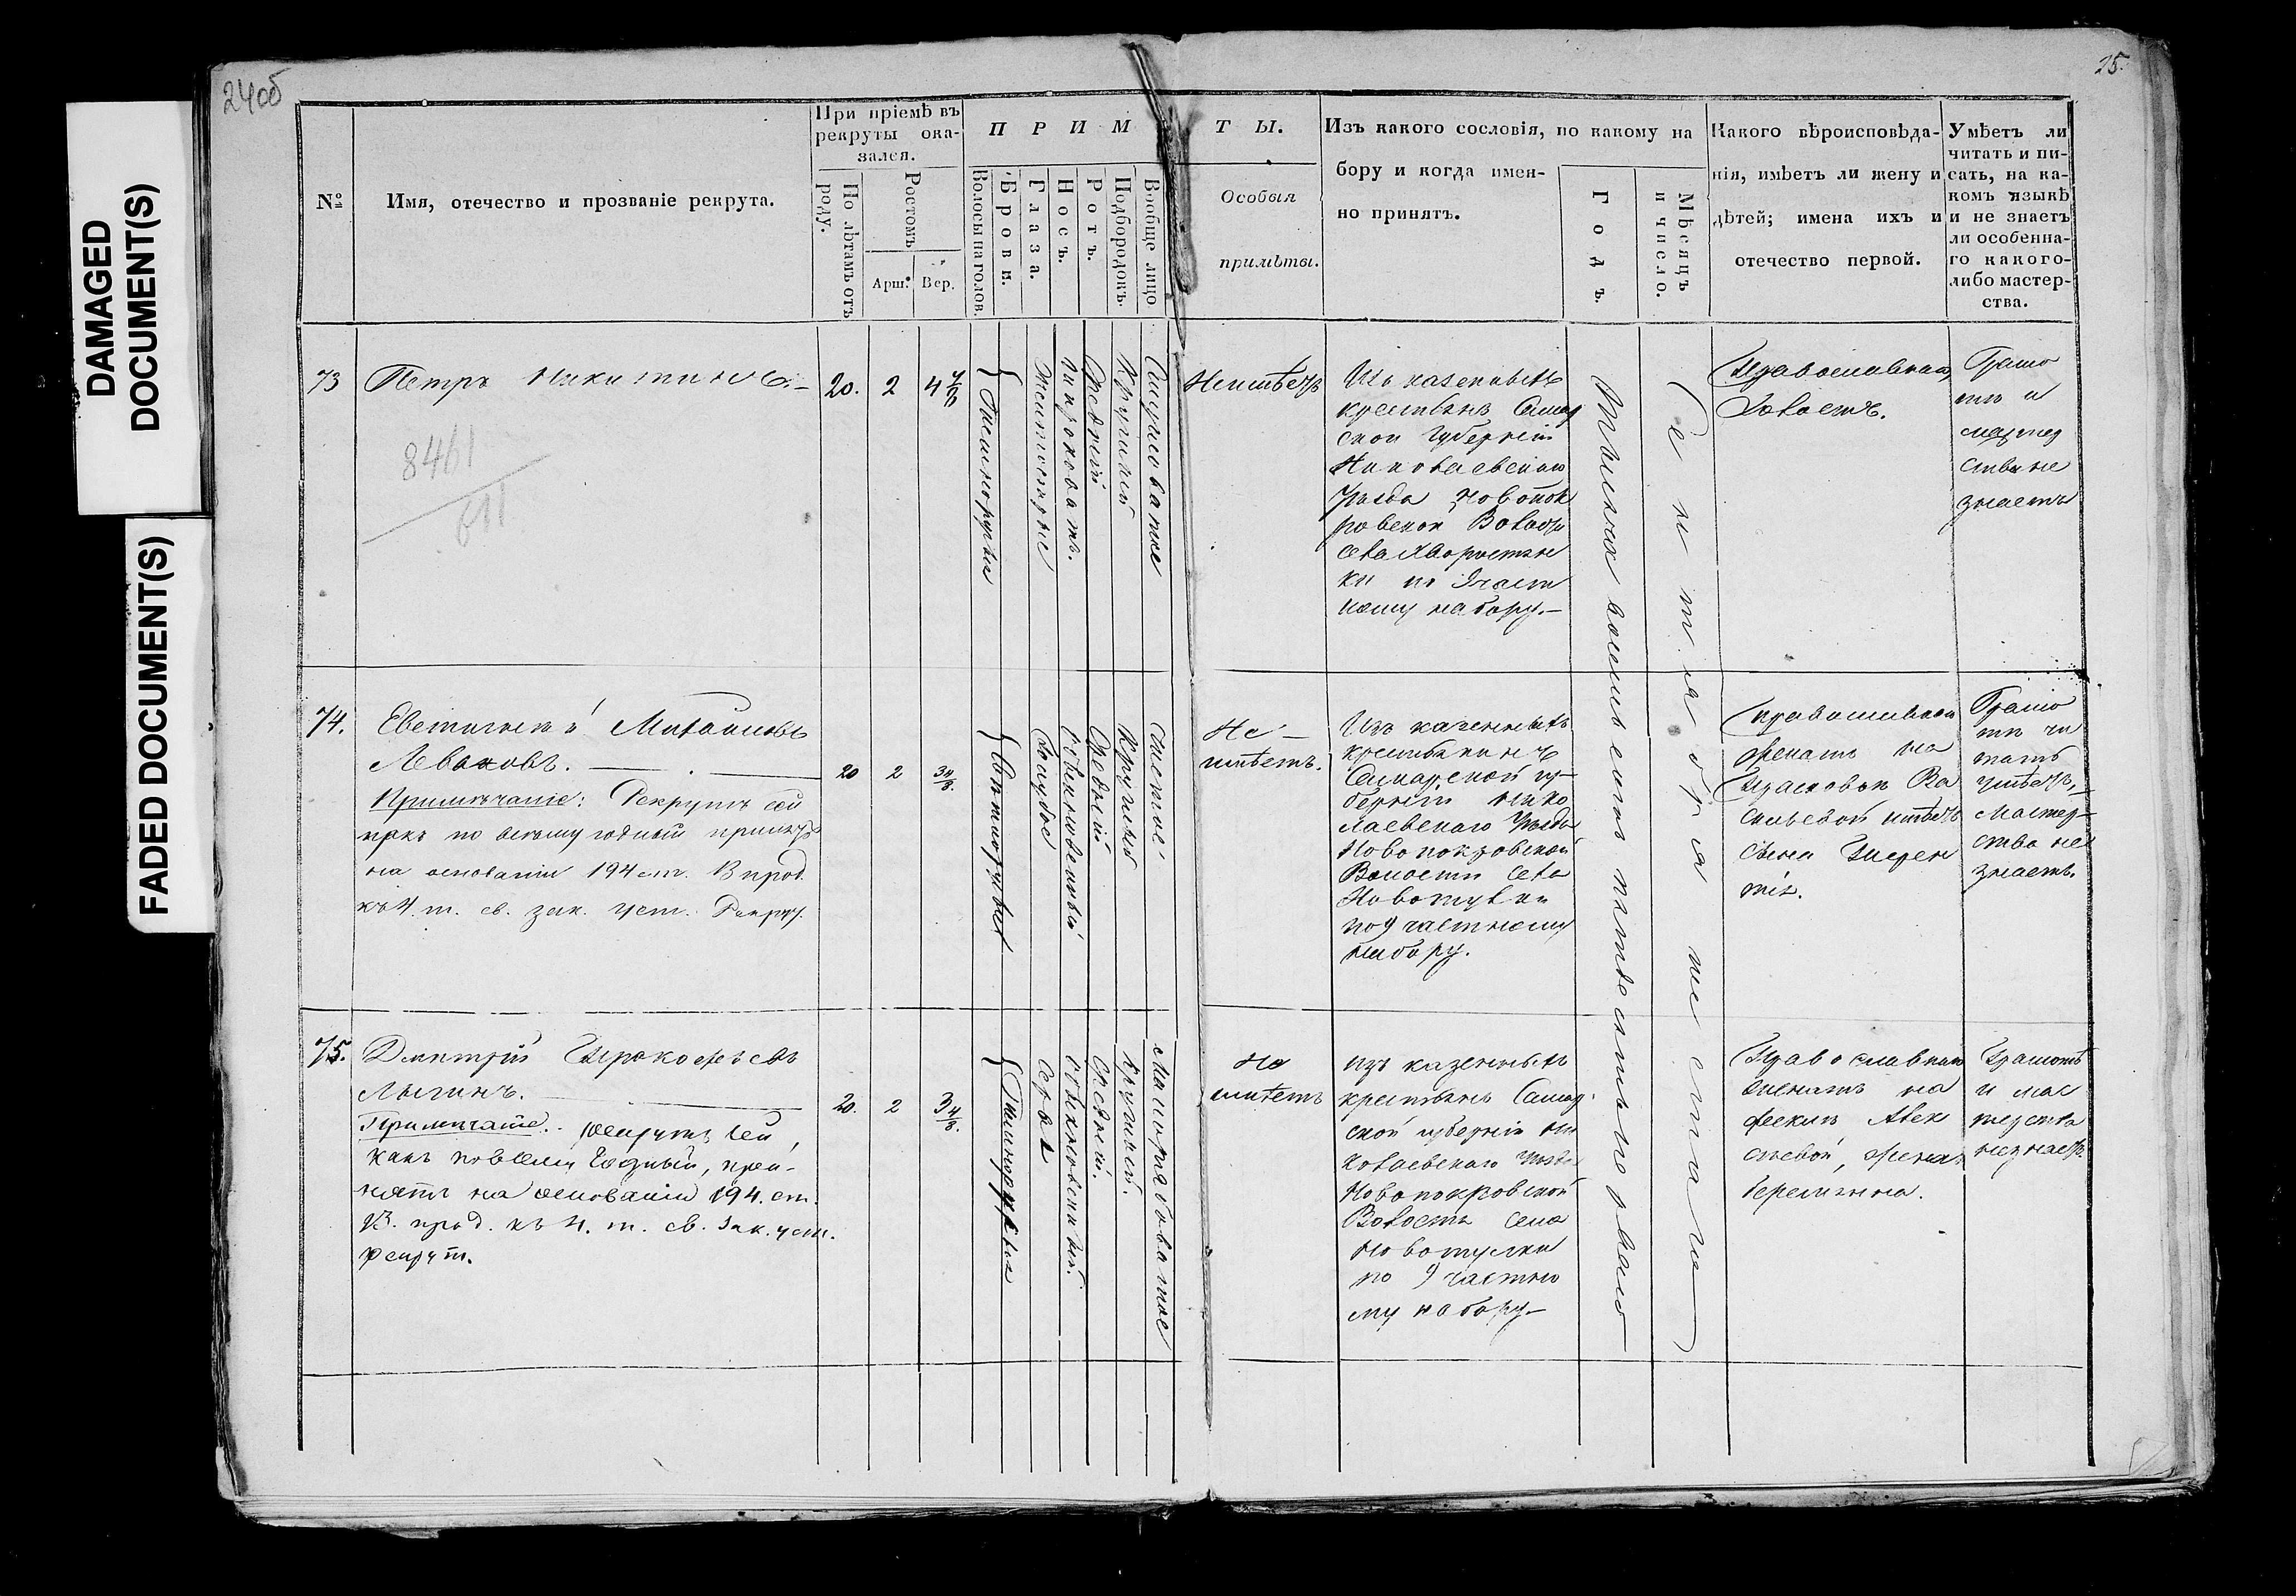 DAMAGED
DOCUMENT(S)
FADED DOCUMENT(S)
24об
25.
№
Имя, отечество и прозваніе рекрута.
При пріемѣ въ
рекруты ока-
зался.
По лѣтамъ отъ
роду.
Ростомъ
Арш.
Вер.
ПРИМ
Волосы на голов.
Брови.
Глаза.
Носъ.
Ротъ.
Подбородокъ.
Вообще лицо
ТЫ.
Особыя
примѣты.
Изъ какого сословія, по какому на
бору и когда имен-
но принятъ.
Годъ.
Мѣсяцъ
и число.
Какого вѣроисповѣда-
нія, имѣетъ ли жену и
дѣтей; имена ихъ и
отечество первой.
Умѣетъ ли
читать и пи-
сать, на ка-
комъ языкѣ
и не знаетъ
ли особенна-
го какого-
либо мастер-
ства.
73
Петръ Никитинъ
8461
611
20.
2
4 7/8
Темнорусыя
Желтострые
Широковатъ.
Средній
Круглый
Неимѣетъ
Изъ казенныхъ
крестьянъ Самар
ской Губерніи
Николаевскаго
Уѣзда Новопок
ровской Волости
села Хворостян
ки по 9 част
ному набору.-
Православнаго,
Холостъ.
Грамо
тѣ и
мастер
ства не
знаетъ
Тысяча восемь сотъ пятьдесятъ перваго
Сентября
74.
Михайловъ
Леваховъ.
Примѣчаніе: Рекрутъ сей
какъ по всему годный принятъ
на основаніи 194 ст. В прод.
къ 4. т. св. зак. уст. Рекру.
20
2
3 4/8.
Свѣтлорусыя
Голубые
Обыкновенный
Средній
Круглый
Чистое
Не
имѣетъ.
Изъ казенныхъ
крестьянинъ
Самарской гу-
берніи Нико
лаевскаго Уѣзда
Новопокровской
Волости села
Новотулки
по 9 частному
набору.
Православнаго
женатъ на
Прасковьи Ва
сильевой имѣетъ
сына
Грамо
тѣ чи
тать
умѣетъ,
мастер-
ства не
знаетъ.
75.
Дмитрій Прокофьевъ
Лыгинъ.
Примѣчаніе.- рекрутъ сей,
какъ повсему Годный, при-
нятъ на основаніи 194. ст.
В. прод. къ 4. т. св. Зак. уст.
рекрут.
20.
2
3 4/8.
Темнорусыя
Сѣрыя
Обыкновенный.
Средній.
Круглый.
Не
имѣетъ
изъ казенныхъ
крестьянъ Самар
ской губерніи Ни
колаевскаго Уѣзда
Новопокровской
Волости села
Новотулки
по 9 частно
му набору-
Православнаго
женатъ на
Алек
сѣевой, жена
беременна.
Грамотѣ
и мас
терства
незнаетъ.